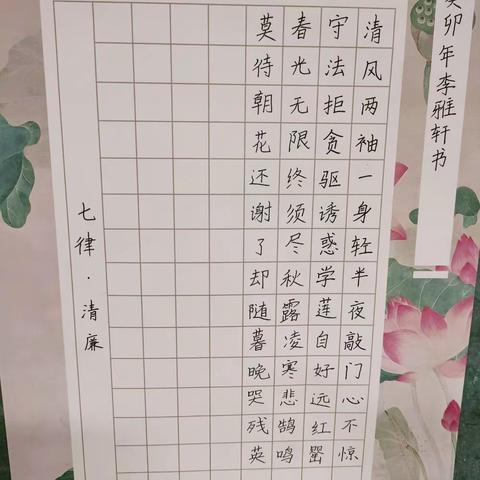 癸卯年李雅轩书
清风两袖一身轻半夜敲门心不惊
守法拒贪驱诱惑学莲自好远红罂
春光无限终须尽秋露凌寒悲鹄鸣
莫待朝花还谢了却随暮晚哭残英
七律·清廉